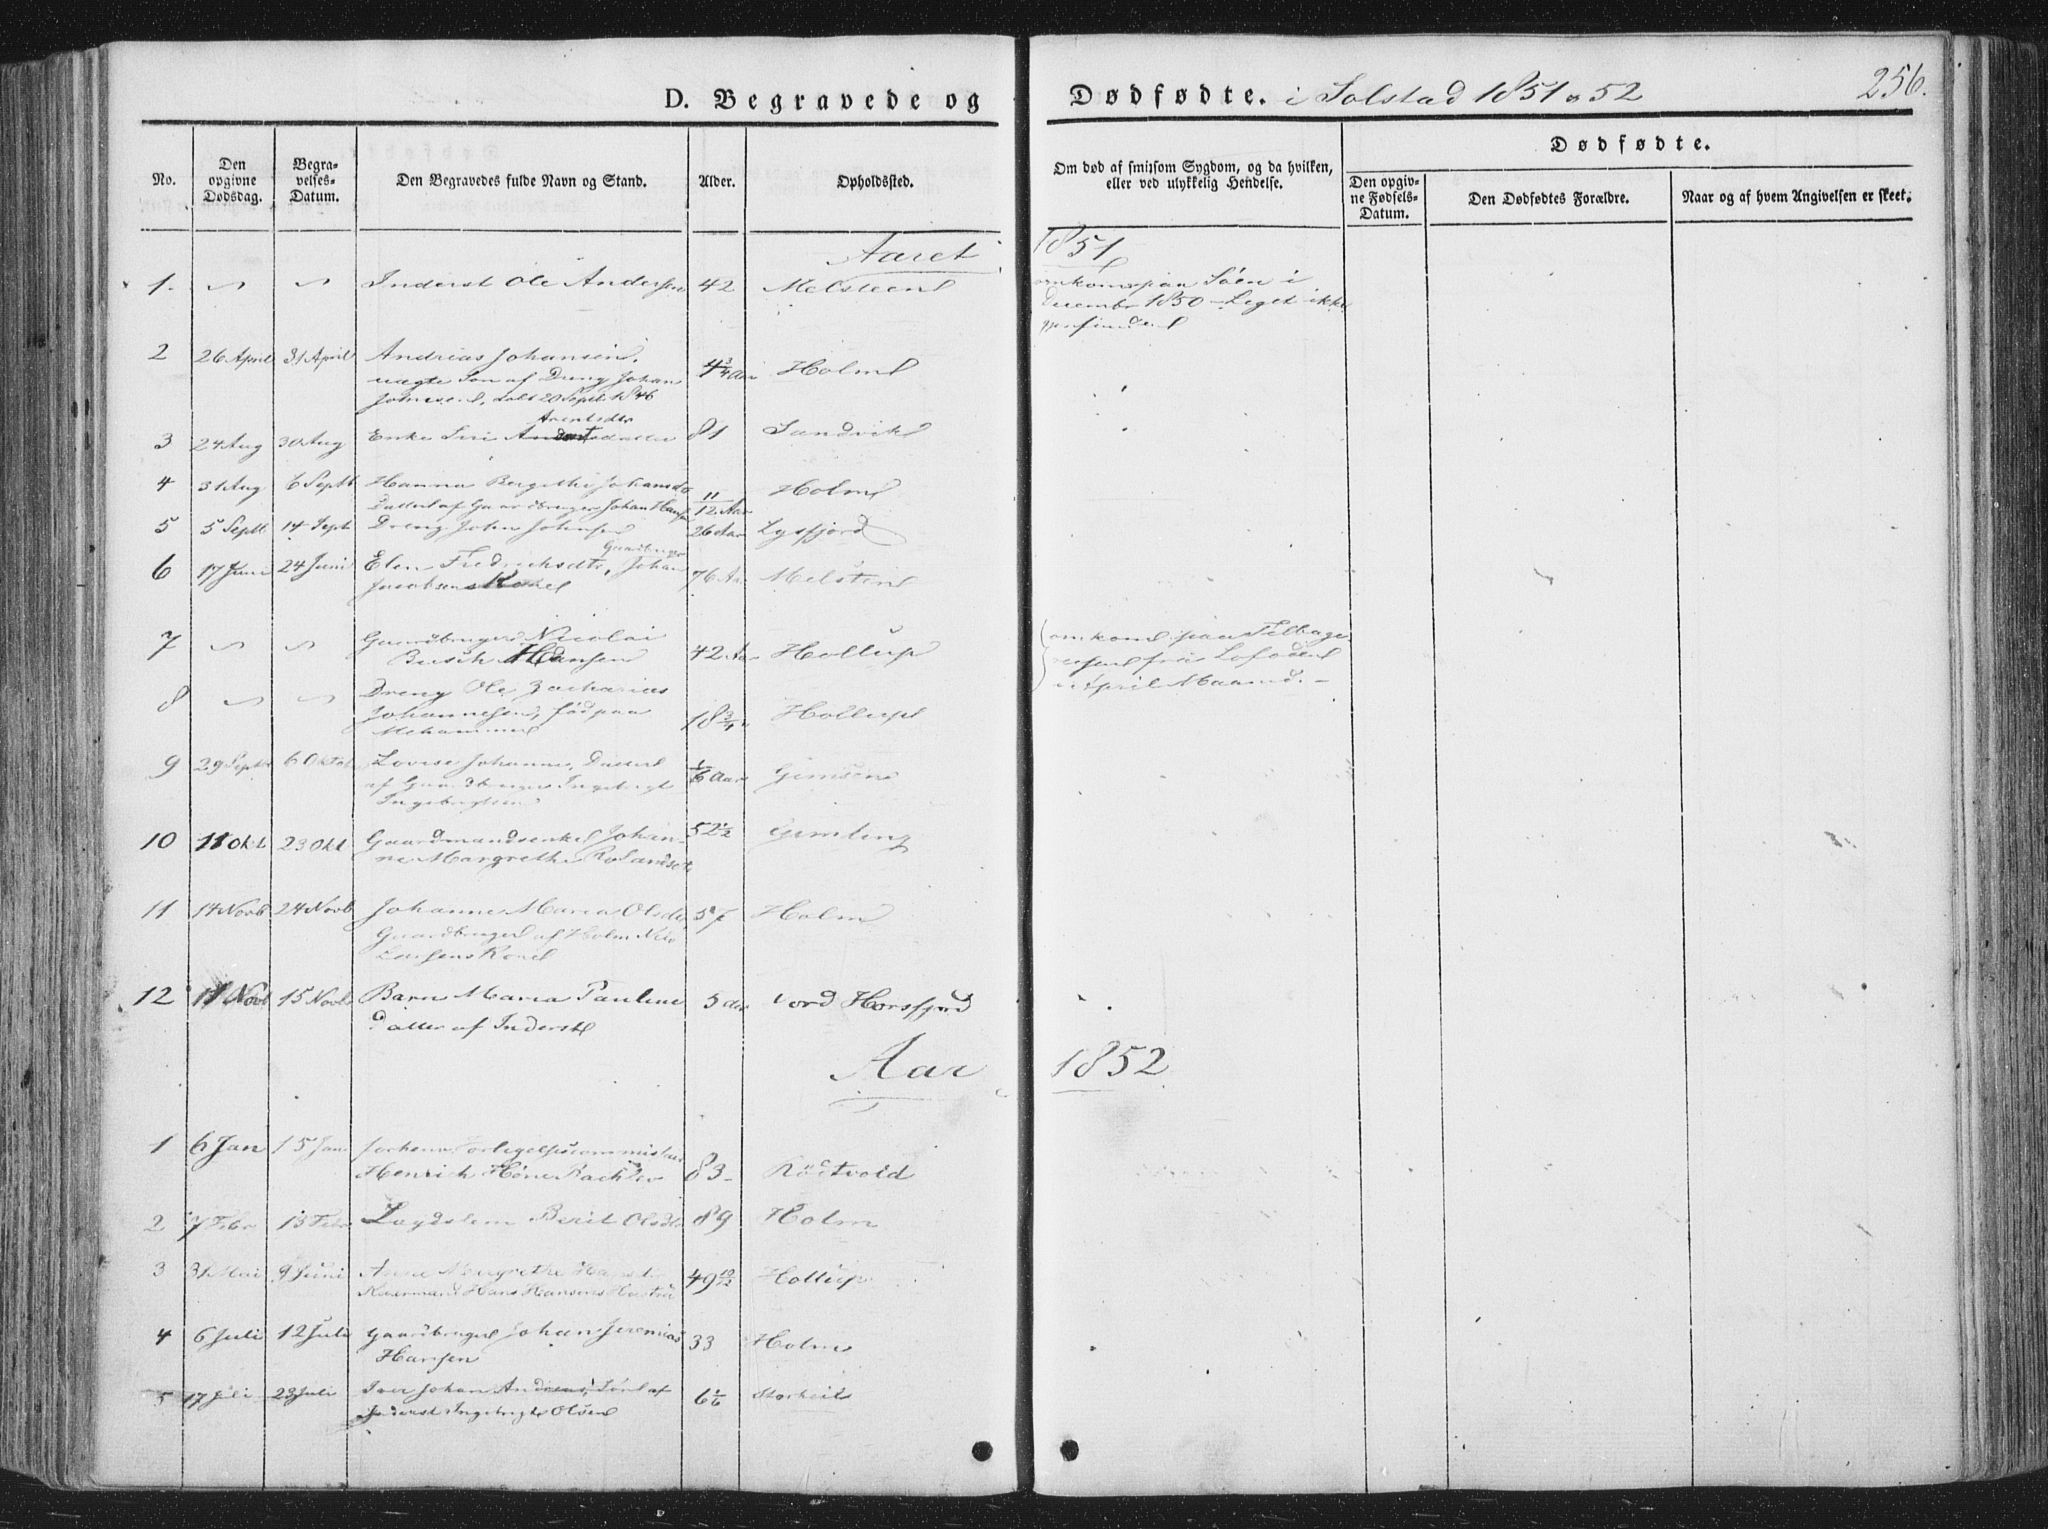 D. Begravede og Dødfødte. i Solstad 1851 & 52
256.
No.
Den opgivne Dødsdag.
Begravelses-Datum.
Den Begravedes fulde Navn og Stand.
Alder.
Opholdssted.
Om død af smitsom Sygdom, og da hvilken, eller ved ulykkelig Hendelse.
Dødfødte.
Den opgivne Fødsels-Datum.
Den Dødfødtes Forældre.
Naar og af hvem Angivelsen er skeet.
Aaret 1851
1. Inderst Ole Andersen 42 Melsteen omkom paa Söen i
December 1850 - Leget ikke
gjenfunden
2 26 April 31 April Andreas Johansen, 4 3/4 Aar Holm
uægte Søn af Dreng Johan
20 Sept. 1846
Arentsdtr
3 24 Aug 30 Aug Enke Siri 81 Sandvik
4 31 Aug 6 Septb Hanna Bergithe Johansdtr 11/12 Aar Holm
Datter af Gaardbruger Johan Hansen
5 5 Septb 14 Septb Dreng John Johnsen 26 Aar Lysfjord
Gaardbruger
6 17 Juni 24 Juni Elen Fredrichsdtr, Johan 76 Aar Melsten
Jacobsens Kone
7 Gaardbruger Nicolai 42 Aar Hollup omkom paa Tilbage
Busch Hansen reisen fra Lofoden
i April Maaned. -
8 Dreng Ole Zacharias 18 3/4 Hollup
Johannesen, föd paa
9 29 Septb 6 Oktob Lovise Johanna, Datter 1/6 Aar Gimsen
af Gaardbruger Ingebrigt
Ingebrigtsen
10 11 Okt 23 Okt Gaardmandsenke Johan- 52 1/2 Gimling
ne Margrethe
11 14 Novb 24 Novb Johanne Maria Olsdtr 57 Holm
Gaardbruger af Holm Nils
Larsens Kone
12 11 Novb 15 Novb Barn Maria Pauline 5 Aar Nord Horsfjord
Datter af Inderst
Aar 1852
1 6 Jan 15 Jan Forligelsescommissær
Henrich Rachlev 83 - Rödtvold
2 7 Febr 13 Febr Lægdslem Berit Olsdtr 89 Holm
3 31 Mai 9 Juni Anne Margrethe Hansdtr 49 10/12 Hollup
Hans Hansens Hustru
4 6 Juli 12 Juli Gaardbruger Johan Jeremias 33 Holm
Hansen
5 17 Juli 23 Juli Iver Johan Andreas, Sön af 6 1/6 Storheil
Inderst Ingebrigt Olsen